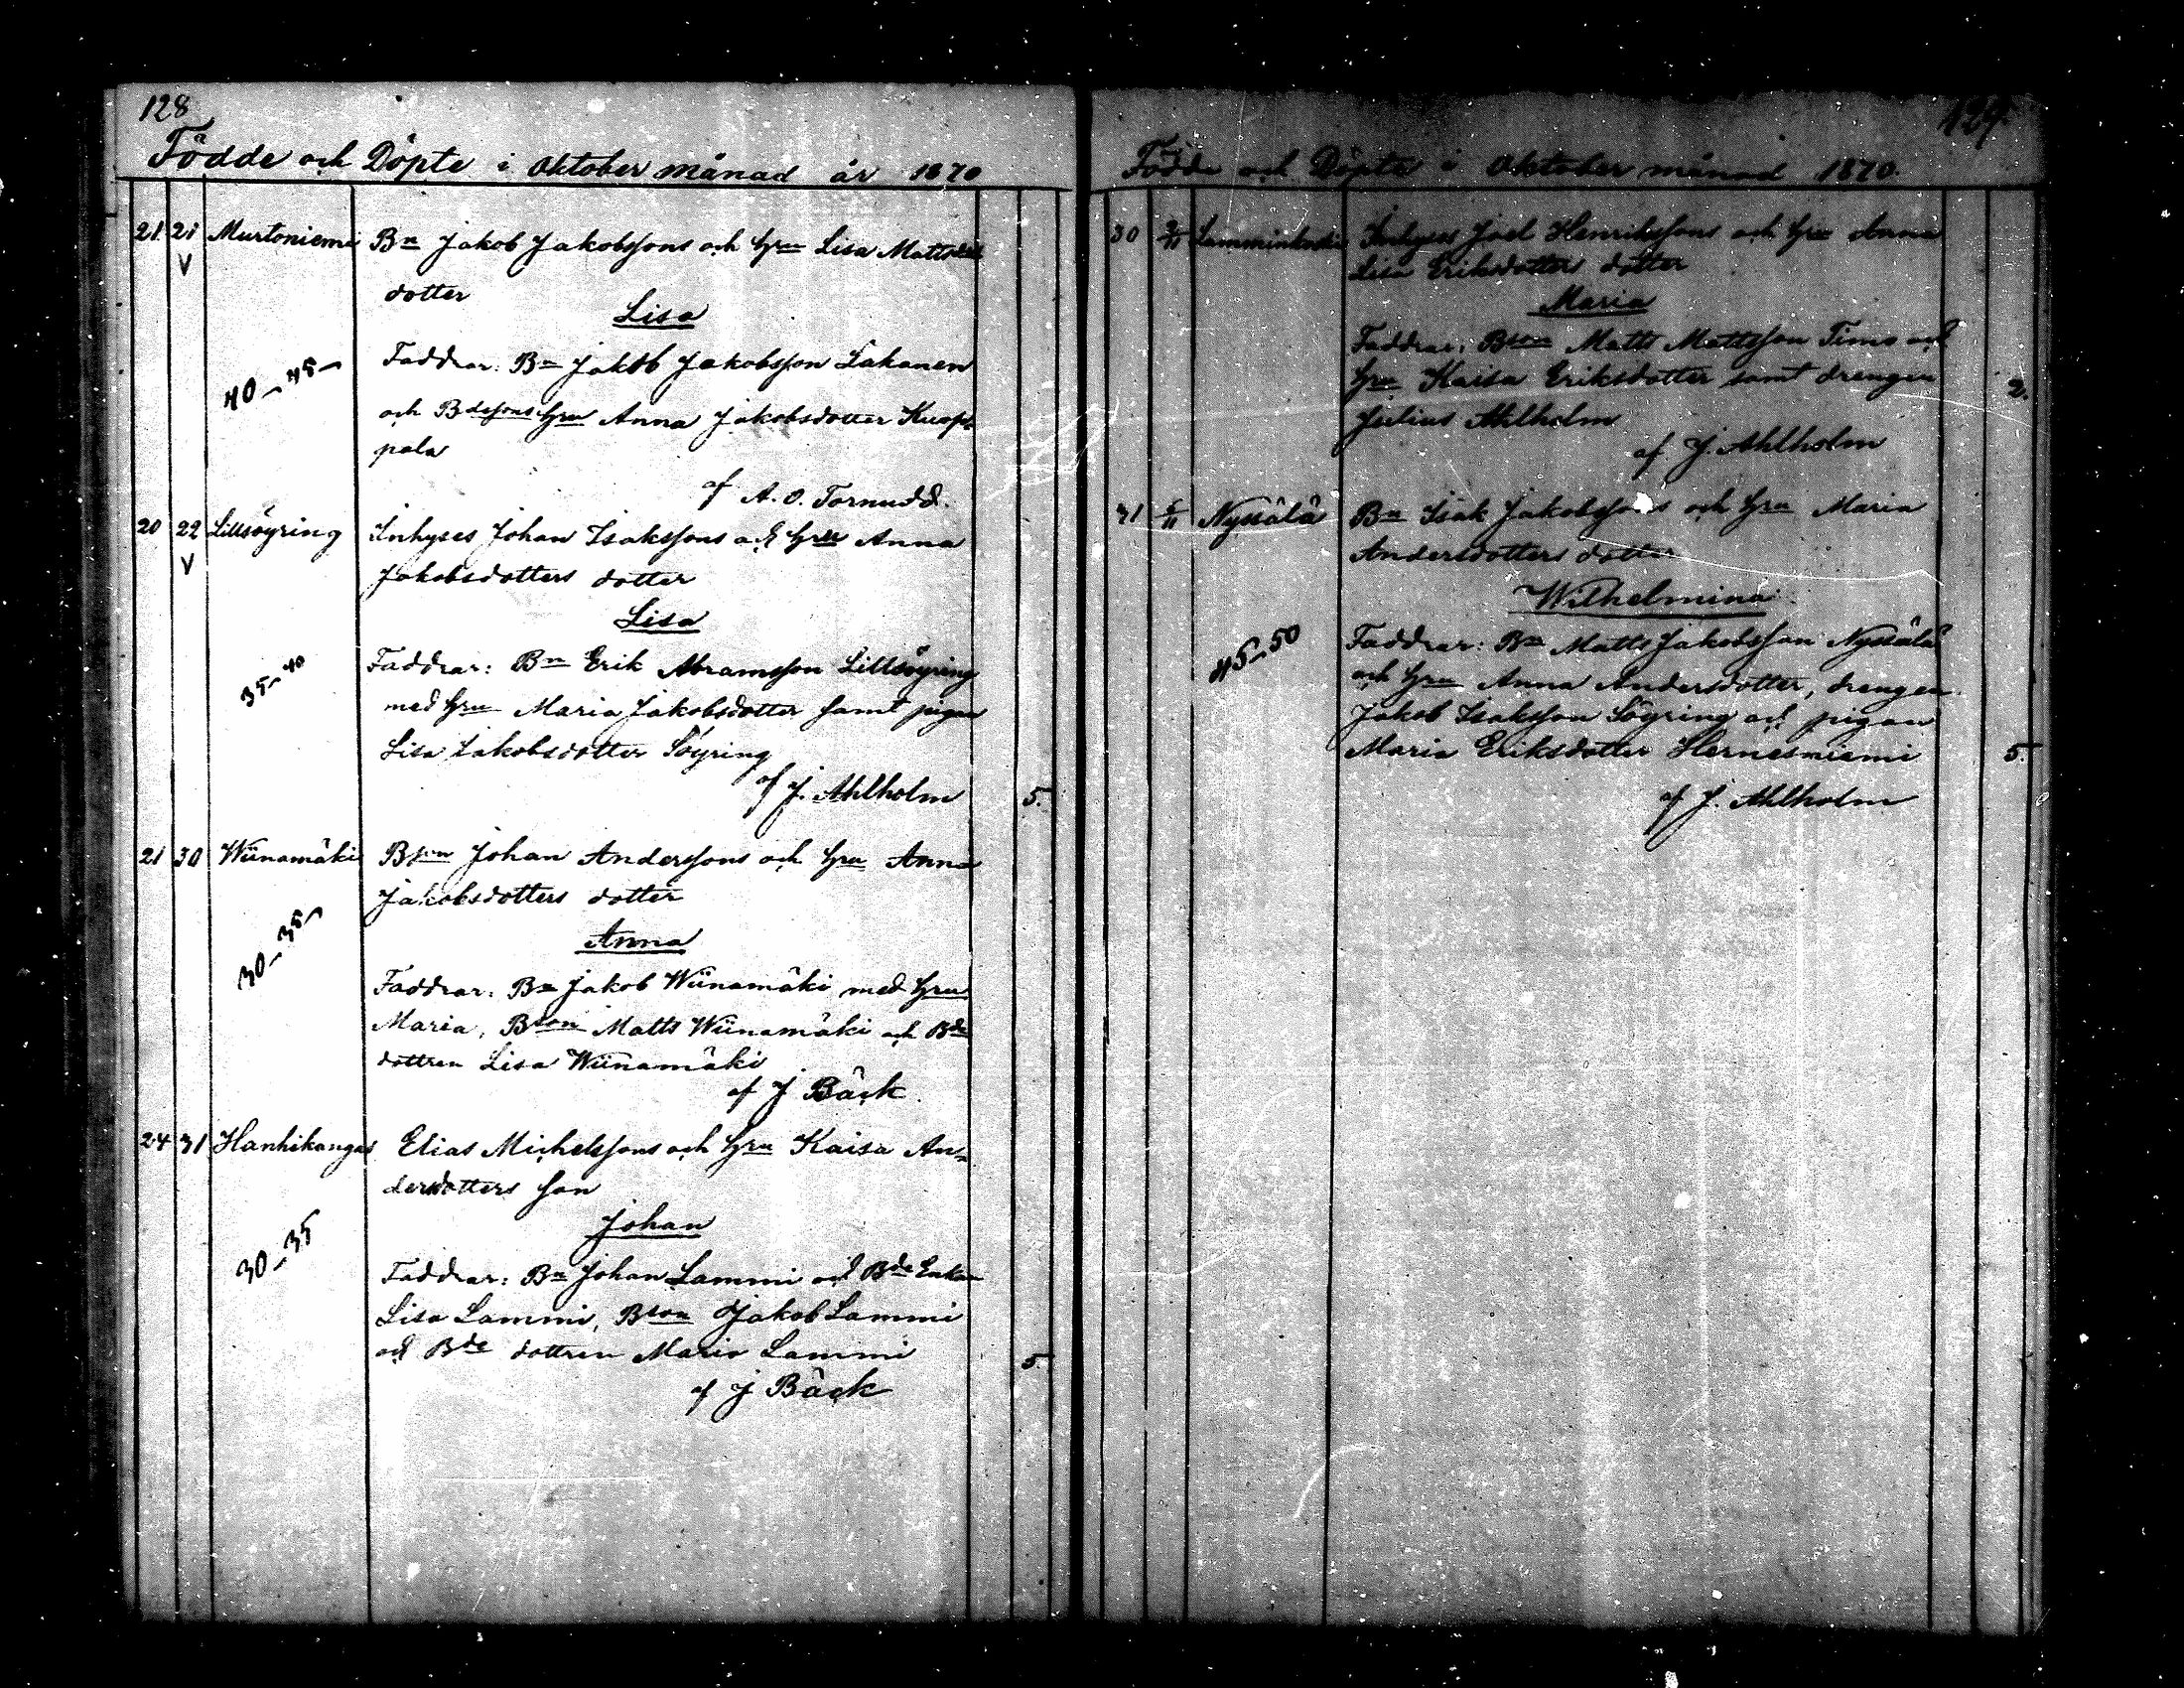 128
Födde och Döpte i Oktober månad år 1870
21. 21 Murtoniemi Bn Jakob Jakobssons och hru Lisa Mattsdrs
V
dotter
Lisa
40-45-
Faddrar: Bn Jakob Jakobsson Lakanen
och Bdesons hru Anna Jakobsdotter Kuop-
pala
af A. O. Tornudd.
20 22 Lillsöyring Inhyses Johan Isakssons och hru Anna
V
Jakobsdotters dotter
Lisa
35-40
Faddrar: Bn Erik Abramsson Lillsöyring
med hru Maria Jakobsdotter samt pigan
Lisa Jakobsdotter Söyring
af J. Ahlholm 5.
21 30 Wiinamäki Bson Johan Anderssons och hru Anna
Jakobsdotters dotter
30-35-
Anna
Faddrar: Bn Jakob Wiinamäki med hru
Maria, Bson Matts Wiinamäki och Bde
dottren Lisa Wiinamäki
af J Bäck.
24 31 Hanhikangas Elias Michelssons och hru Kaisa An-
dersdotters son
Johan
30-35
Faddrar: Bn Johan Lammi och Bde Enkan
Lisa Lammi, Bson Jakob Lammi
och Bde dottren Maria Lammi 5.
af J Bäck
129.
Födde och Döpte i Oktober månad 1870.
30 Lamminkoski Inhyses Joel Henrikssons och hru Anna
Lisa Eriksdotters dotter
Maria
Faddrar: Bson Matts Mattsson Timo och
hru Kaisa Eriksdotter samt drengen 2.
Julius Ahlholm
af J. Ahlholm
31 5/11 Nyssälä Bn Isak Jakobssons och hru Maria
Andersdotters dotter
Wilhelmina
45-50
Faddrar: Bn Matts Jakobsson Nyssälä
och hru Anna Andersdotter, drengen
Jakob Isaksson Söyring och pigan
Maria Eriksdotter Hernesniemi 5.
af J. Ahlholm